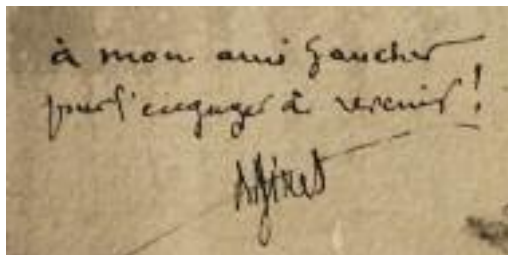 à mon ami Gaucher
pour l'engager à revenir !